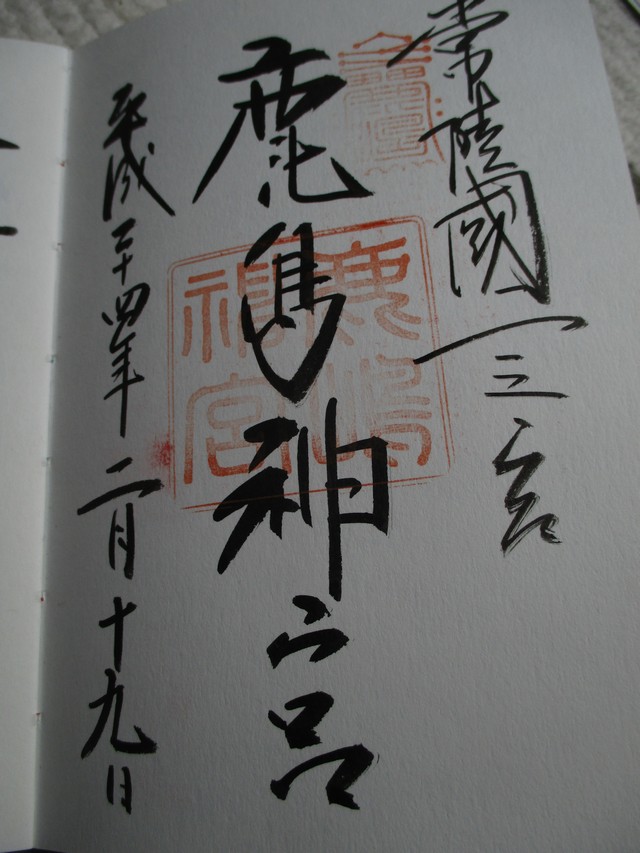 常陸國一之宮
鹿島神宮
鹿嶋
神宮
平成二十四年二月十九日